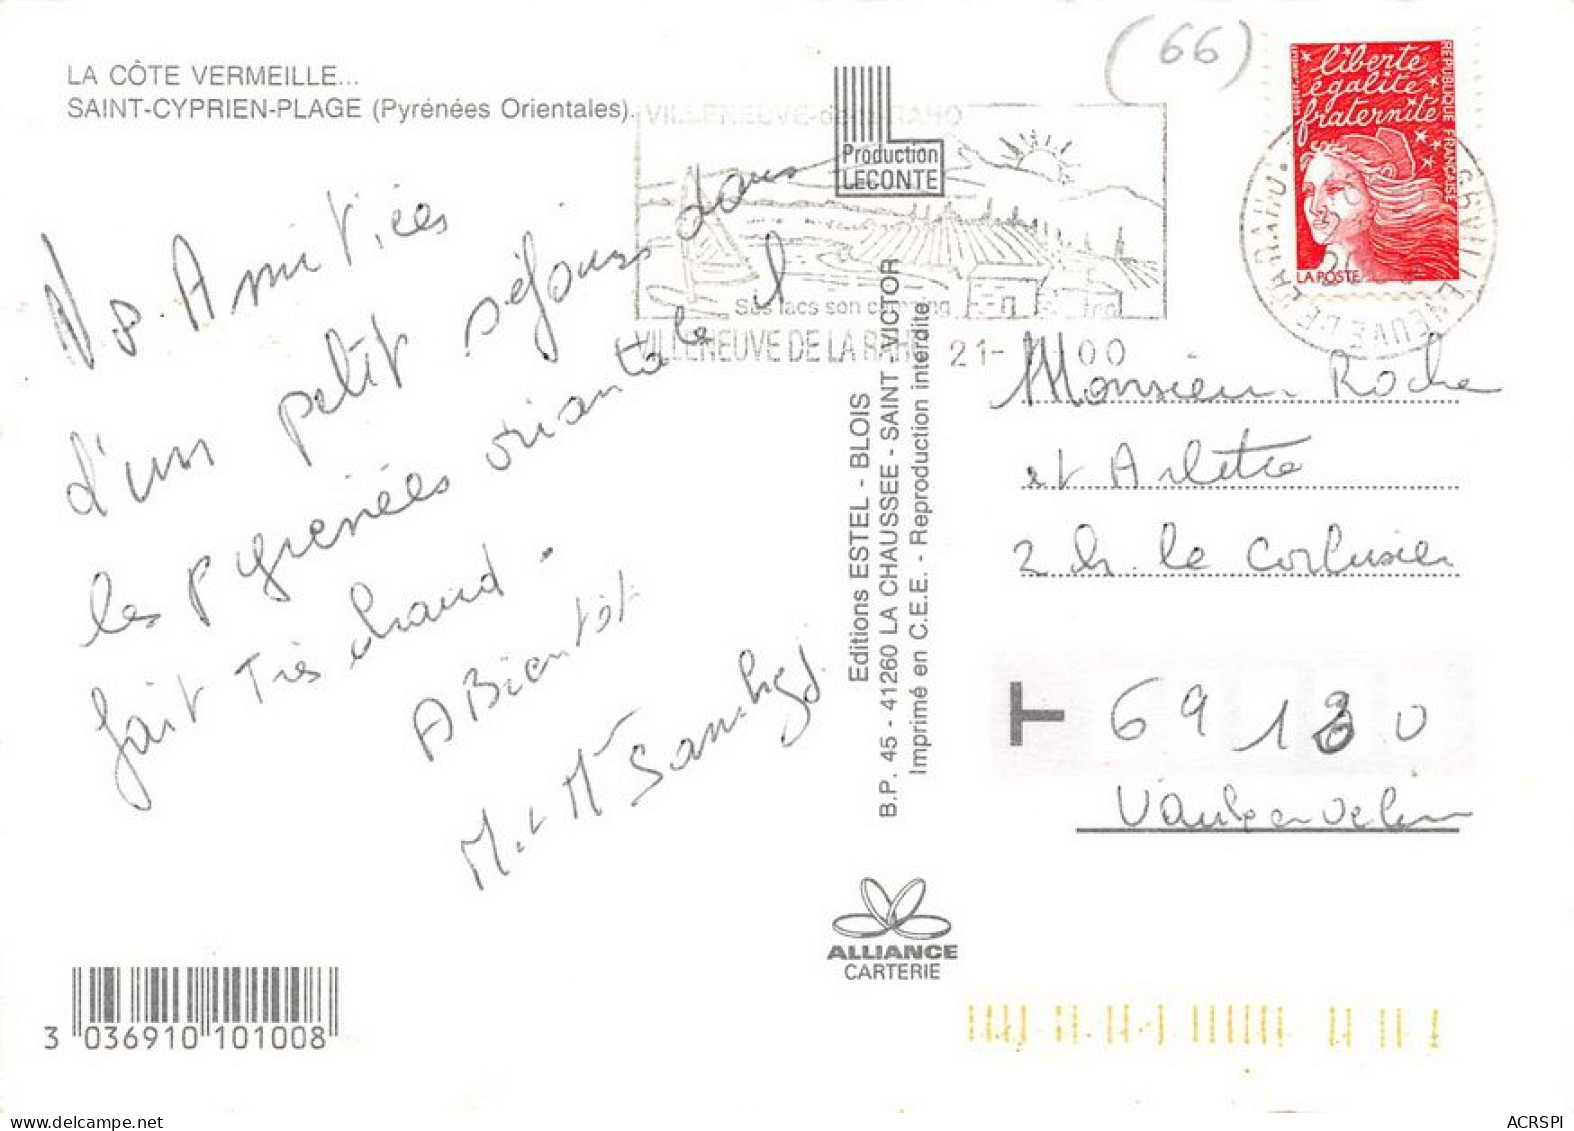 LA CÔTE VERMEILLE...
SAINT-CYPRIEN-PLAGE (Pyrénées Orientales).
Nos Amitiées
d'un petit séjours dans
les pyrenées orientale Il
fait Très chaud.
A Bientôt
M. et Mr
(66)
VILLENEUVE-de-la-RAHO
Ses lacs son camping
VILLENEUVE DE LA RAHO 21- 00
Production
LECONTE
liberté
égalité
fraternité
RÉPUBLIQUE FRANÇAISE
LA POSTE
66 VILLENEUVE DE LA RAHO
Editions ESTEL - BLOIS
B.P. 45 - 41260 LA CHAUSSEE - SAINT - VICTOR
Imprimé en C.E.E. - Reproduction interdite
Monsieur Roche
et Arlette
2 le Corbusier
T 69130
ALLIANCE
CARTERIE
3 036910 101008
ACRSPI